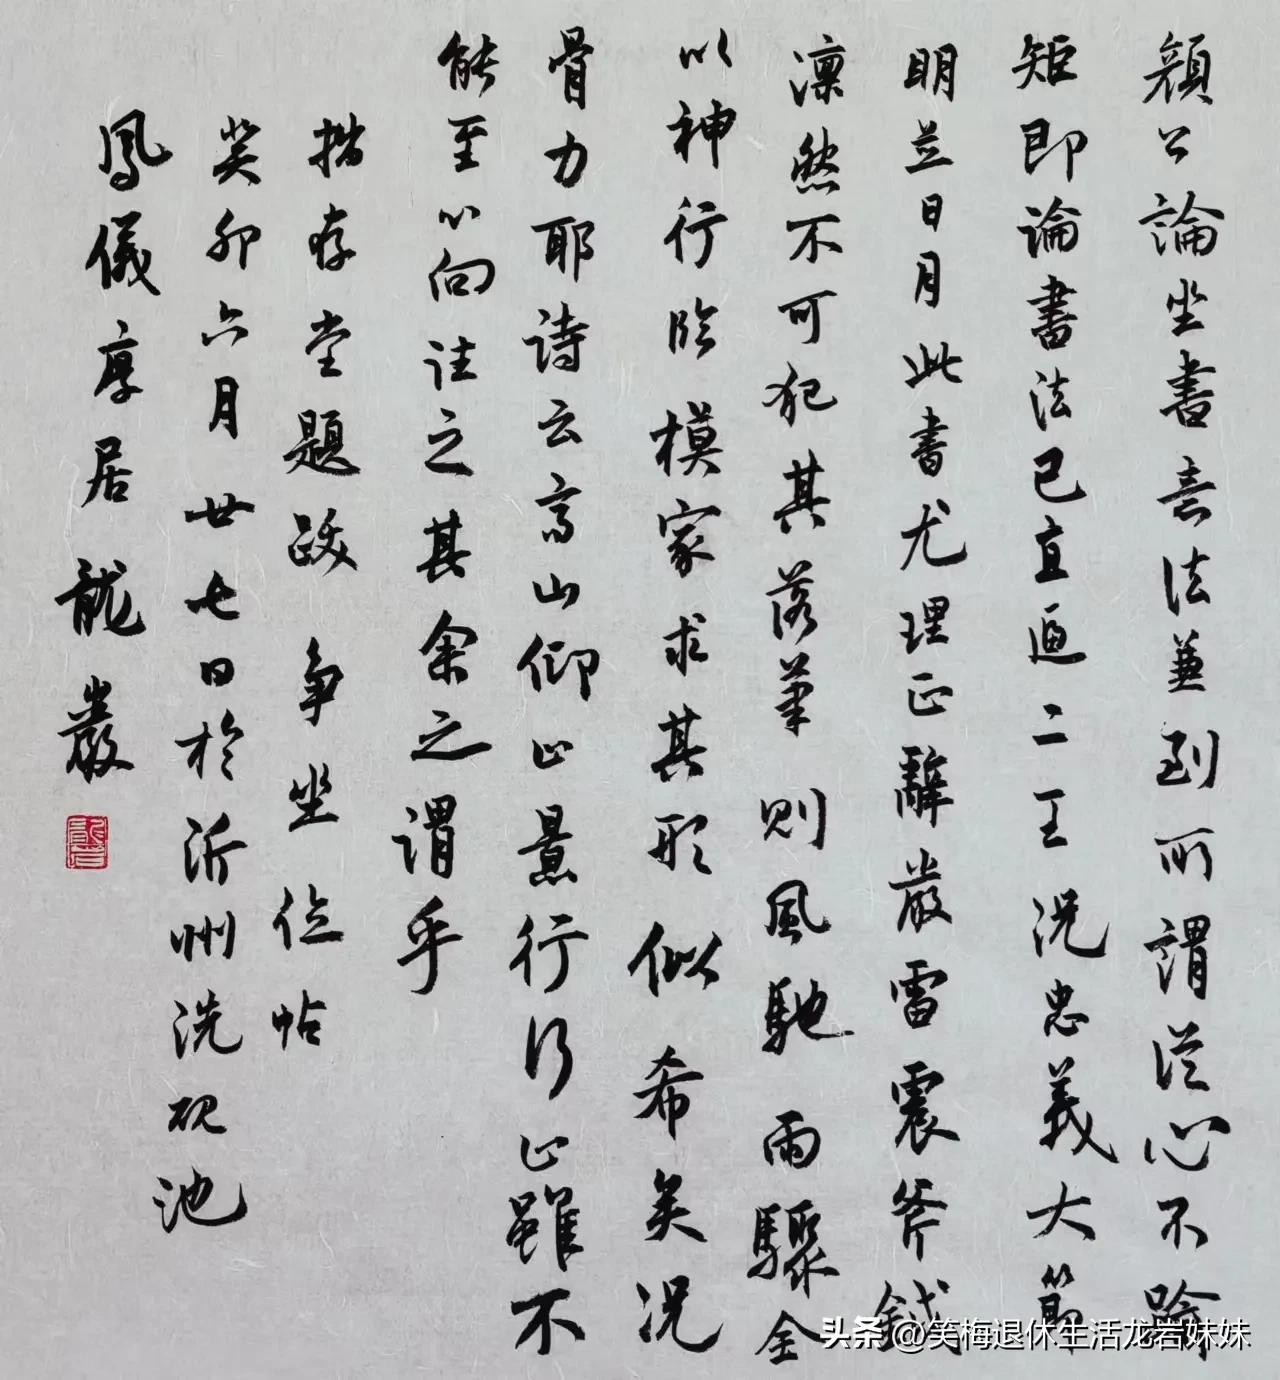 顏公論坐書意法兼到所謂從心不踰
矩即論書法已直逼二王況忠義大節
明並日月此書尤理正辭嚴雷震斧鉞
凜然不可犯其落筆則風馳雨驟全
以神行臨模家求其形似希矣況
骨力耶詩云高山仰止景行行止雖不
能至心向往之其余之謂乎
楷存堂題跋 爭坐位帖
癸卯六月廿七日於沂州洗砚池
鳳儀厚居龍巖
头条 @笑梅退休生活龙岩妹妹